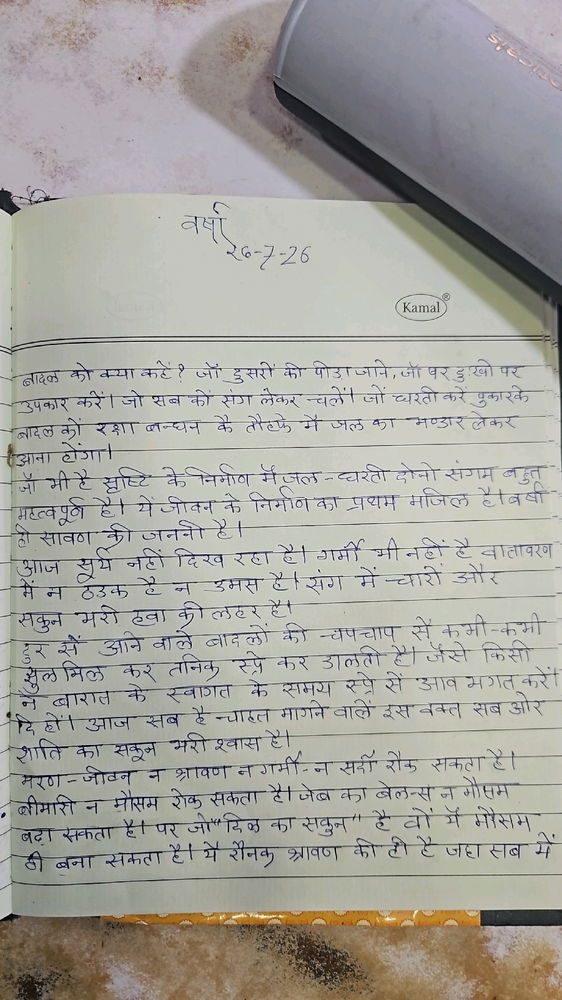 वर्षा
26-7-26
Kamal ®
बादल को क्या कहें? जों दुसरों की पीडा जाने, जों पर दुःखो पर
उपकार करें। जो सब कों संग लेकर चलें। जों धरती करें पुकारके
बादल कों रक्षा बन्धन कें तौहफें में जल का भण्डार लेकर
आना होंगा।
जों भी है सृष्टि के निर्माण में जल-धरती दोनो संगम बहुत
महत्वपूर्ण है। यें जीवन के निर्माण का प्रथम मंजिल है। वर्षा
ही सावण की जननी है।
आज सूर्य नहीं दिख रहा है। गर्मी भी नहीं है वातावरण
में न ठंडक है न उमस है। संग में चारों और
सकुन भरी हवा की लहर है।
दुर सें आने वाले बादलों की चुपचाप सें कभी-कभी
घुल मिल कर तनिक स्प्रे कर डालती है। जैसे किसी
नें बारात के स्वागत के समय स्प्रे सें आव भगत करें।
दि हों। आज सब है चाहत मागने वालें इस वक्त सब ओर
शांति का सकून भरी श्वास है।
मरण-जीवन न श्रावण न गर्मी-न सर्दी रोक सकता है।
बीमारी न मौसम रोक सकता है। जेब का बेलन्स न मौसम
बढा सकता है। पर जो "दिल का सकुन" है वों यें मौसम
ही बना सकता है। यें रौनक श्रावण की ही है जहा सब में